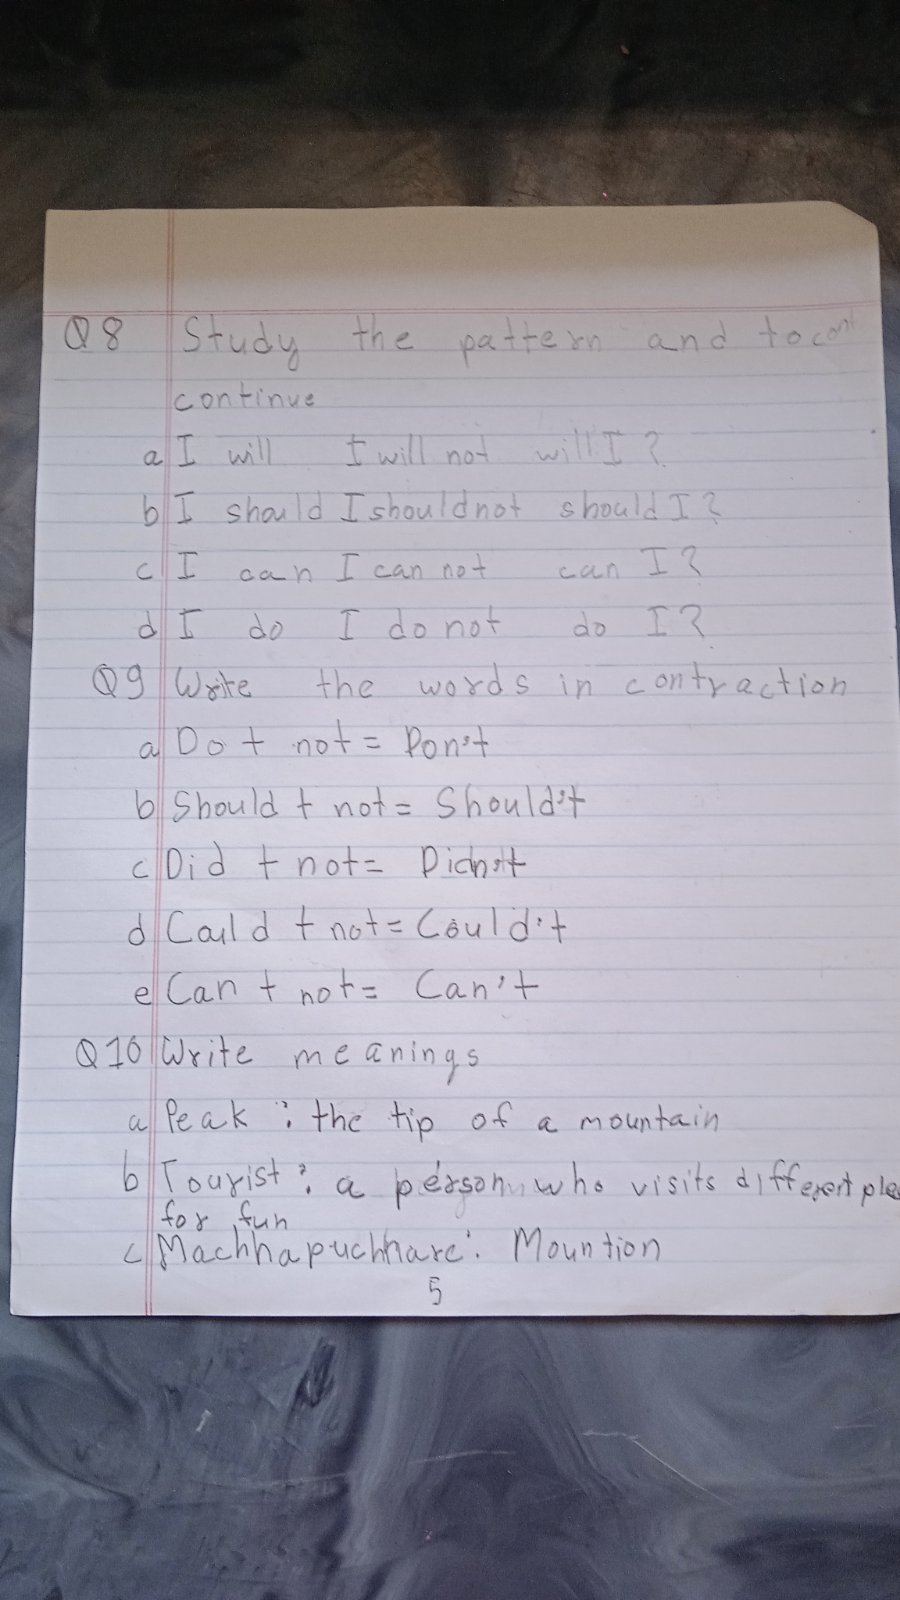 Q8 Study the pattern and to cont
continue
a I will I will not will I?
b I should I should not should I?
c I can I can not can I?
d I do I do not do I?
Q9 Write the words in contraction
a Do + not = Don't
b Should + not = Should't
c Did + not = Didn't
d Could + not = Could't
e Can + not = Can't
Q10 Write meanings
a Peak : the tip of a mountain
b Tourist : a person who visits different
for fun
c Machhapuchhare : Mountion
5